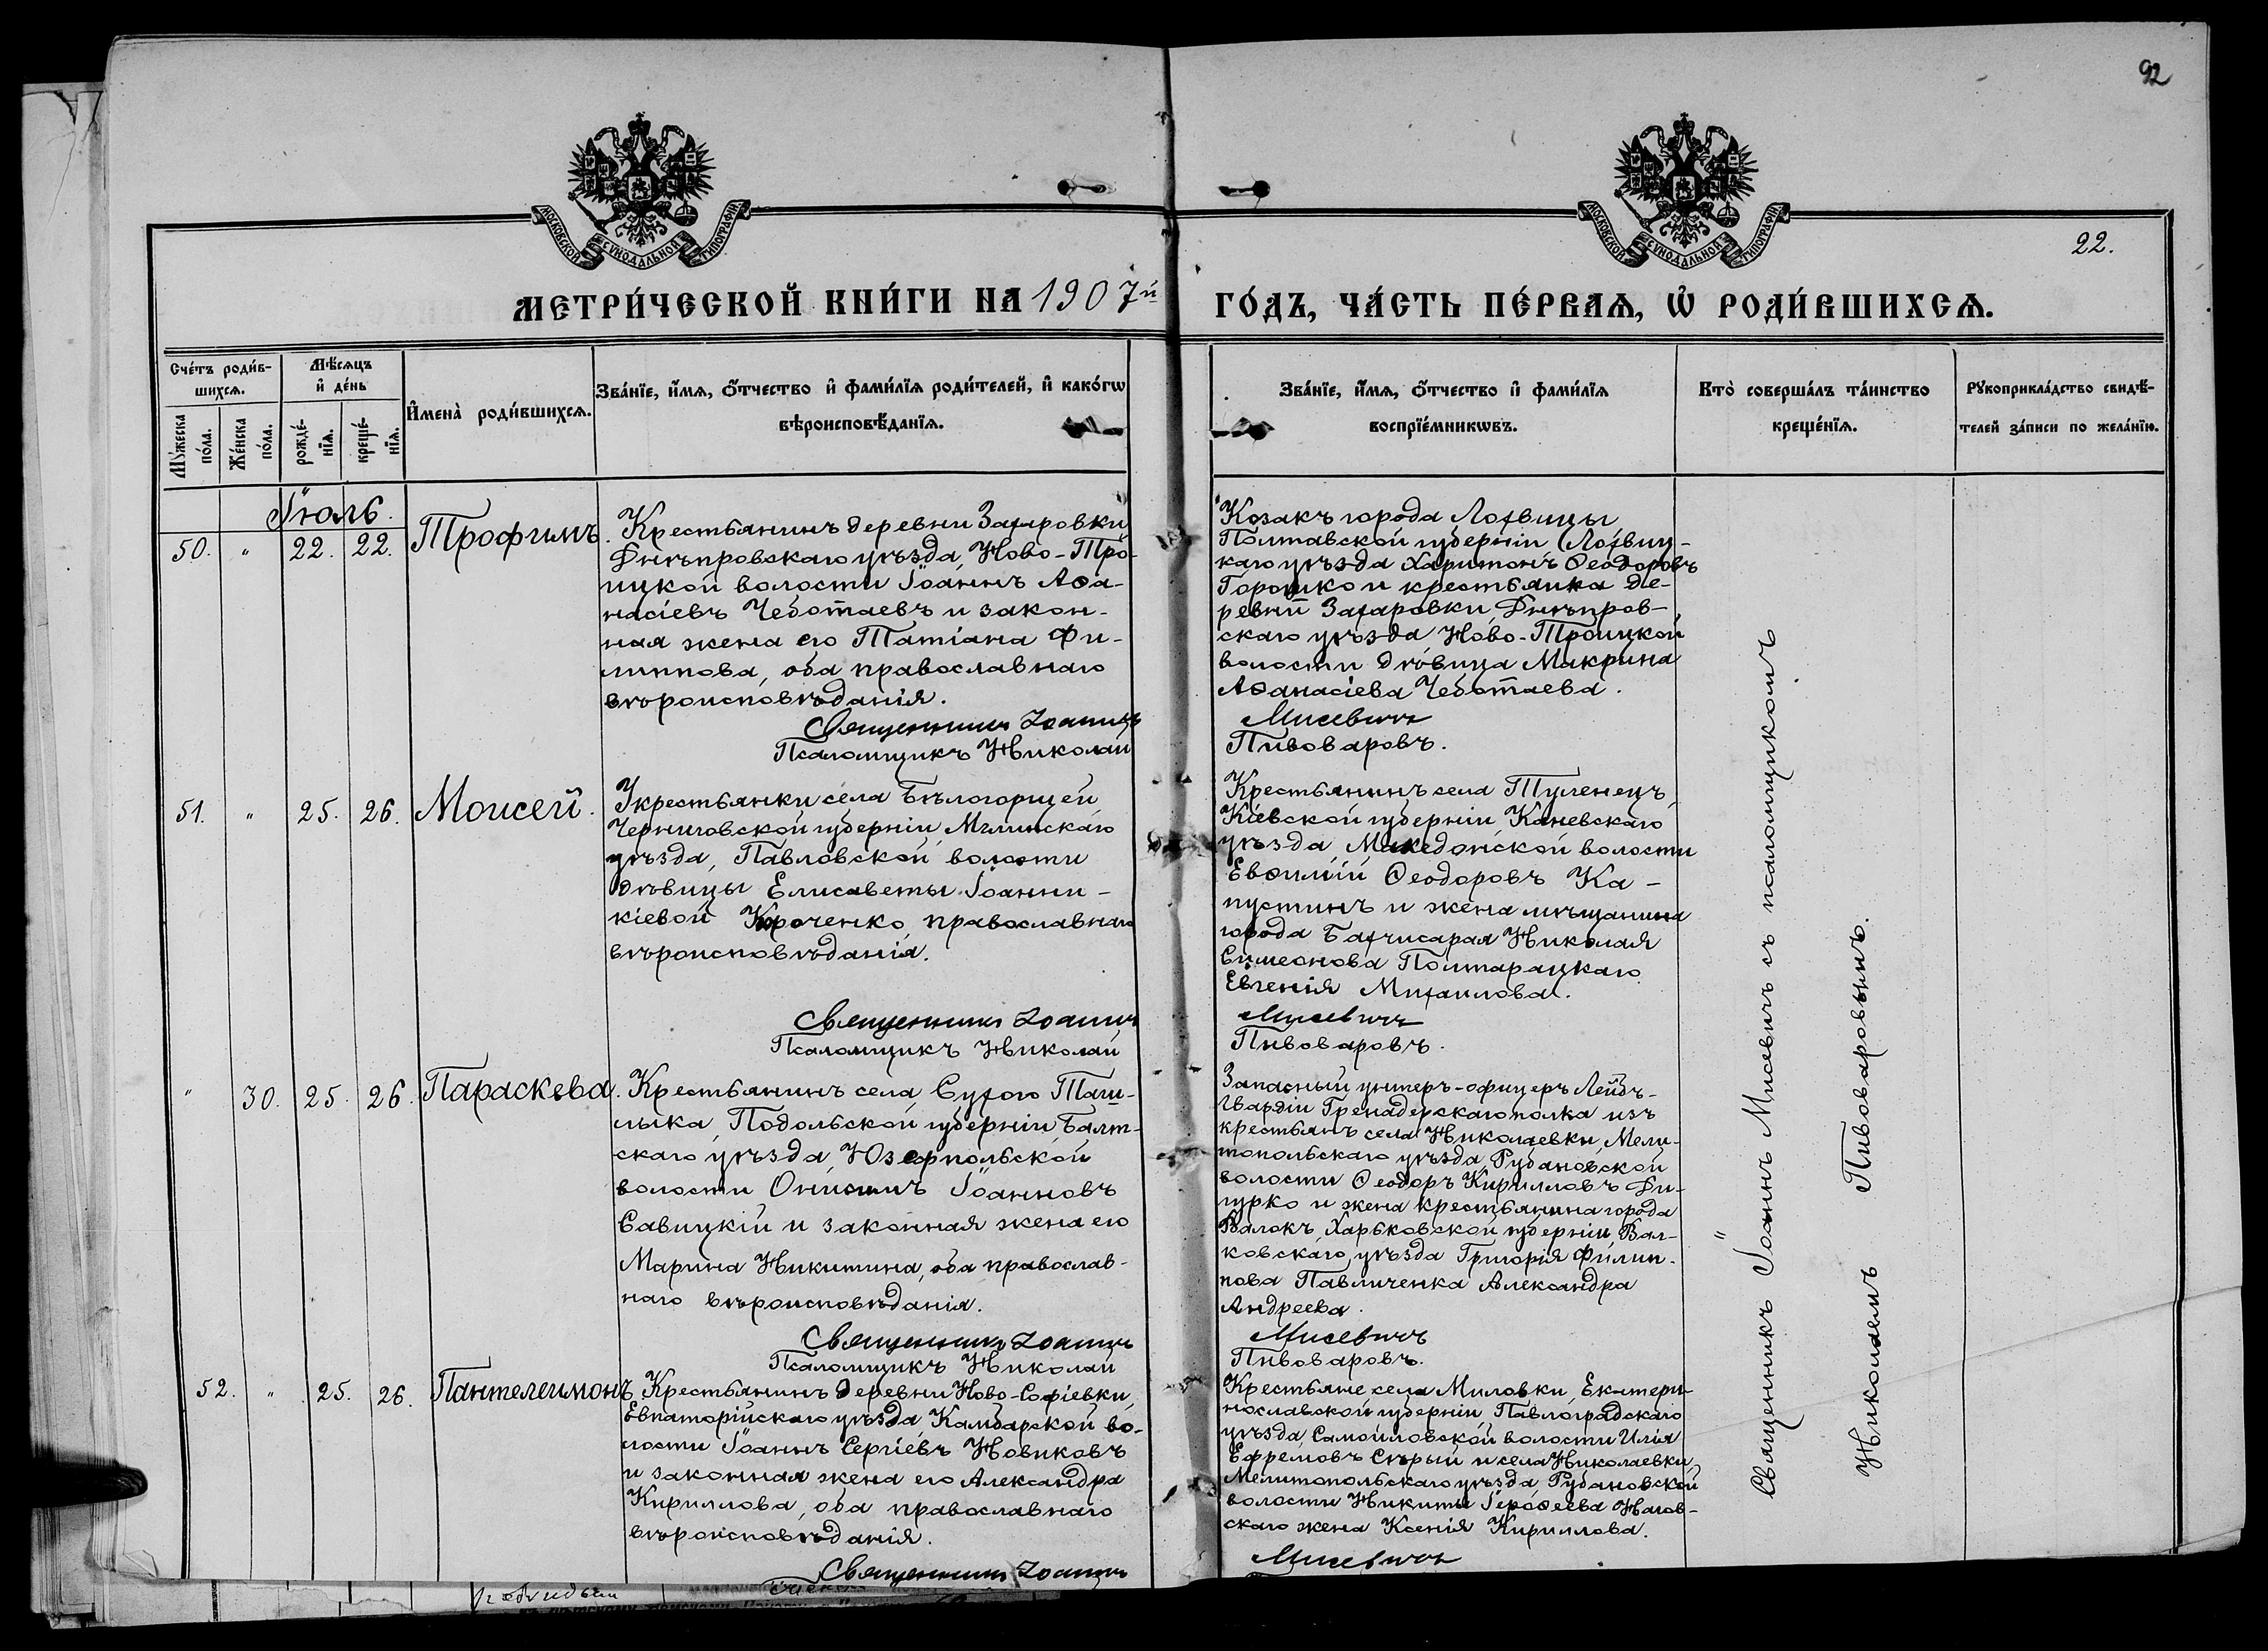 92
МОСКОВСКОЙ СѴНОДАЛЬНОЙ ТИПОГРАФІИ
МОСКОВСКОЙ СѴНОДАЛЬНОЙ ТИПОГРАФІИ
22.
МЕТРИ́ЧЕСКОЙ КНИ́ГИ НА 1907й ГО́ДЪ, ЧА́СТЬ ПЕ́РВАѦ, Ѡ҆ РОДИ́ВШИХСѦ.
Сче́тъ роди́в-
шихсѧ.
Мѣ́сѧцъ
и҆ де́нь
Мꙋ́жеска
по́ла.
Же́нска
по́ла.
рожде́-
нїѧ.
креще́-
нїѧ.
И҆мена̀ роди́вшихсѧ.
Зва́нїе, и҆́мѧ, ѻ҆́тчество и҆ фами́лїѧ роди́телей, и҆ како́гѡ
вѣроисповѣ́данїѧ.
Зва́нїе, и҆́мѧ, ѻ҆́тчество и҆ фами́лїѧ
воспрїе́мникѡвъ.
Кто̀ соверша́лъ та́инство
креще́нїѧ.
Рꙋкоприкла́дство свидѣ́-
телей за́писи по жела́нїю.
Іюль
50. " 22. 22. Трофимъ.
Крестьянинъ деревни Захаровки
Днѣпровскаго уѣзда, Ново-Тро-
ицкой волости Іоаннъ Аѳа-
насіевъ Чеботаевъ и закон-
ная жена его Татіана Фи-
липпова, оба православнаго
вѣроисповѣданія.
Священникъ Іоаннъ
Псаломщикъ Николай
Козакъ города Лохвицы
Полтавской губерніи Лохвиц-
каго уѣзда Харитонъ Ѳеодоровъ
Горошко и крестьянка де-
ревни Захаровки Днѣпров-
скаго уѣзда Ново-Троицкой
волости дѣвица Макрина
Аѳанасіева Чеботаева.
Мисевичъ
Пивоваровъ.
51. " 25. 26. Моисей.
У крестьянки села Бѣлогорщей
Черниговской губерніи, Мглинскаго
уѣзда, Павловской волости
дѣвицы Елисаветы Іоанни-
кіевой Кроченко, православнаго
вѣроисповѣданія.
Священникъ Іоаннъ
Псаломщикъ Николай
Крестьянинъ села Туленецъ,
Кіевской губерніи, Каневскаго
уѣзда, Македонской волости
Евѳимій Ѳеодоровъ Ка-
пустинъ и жена мѣщанина
города Бахчисарая Николая
Симеонова Полтарацкаго
Евгенія Михаилова.
Мисевичъ
Пивоваровъ.
" 30. 25. 26. Параскева.
Крестьянинъ села Сухого Таш-
лыка, Подольской губерніи Балт-
скаго уѣзда, Юзефпольской
волости Онисимъ Іоанновъ
Савицкій и законная жена его
Марина Никитина, оба православ-
наго вѣроисповѣданія.
Священникъ Іоаннъ
Псаломщикъ Николай
Запасный унтеръ-офицеръ Лейбъ-
Гвардіи Гренадерскаго полка изъ
крестьянъ села Николаевки, Мели-
топольскаго уѣзда, Рубановской
волости Ѳеодоръ Кирилловъ Ди-
гурко и жена крестьянина города
Валокъ, Харьковской губерніи, Вал-
ковскаго уѣзда Григорія Филип-
пова Павличенка Александра
Андреева.
Мисевичъ
Пивоваровъ.
52. " 25. 26. Пантелеимонъ
Крестьянинъ деревни Ново-Софіевки,
Евпаторійскаго уѣзда, Камбарской во-
лости Іоаннъ Сергіевъ Новиковъ
и законная жена его Александра
Кириллова, оба православнаго
вѣроисповѣданія.
Священникъ Іоаннъ
Крестьяне села Миловки, Екатери-
нославской губерніи Павлоградскаго
уѣзда Самойловской волости Илія
Ефремовъ Сѣрый и села Николаевки,
Мелитопольскаго уѣзда, Рубановской
волости Никиты Героѳеева Нагов-
скаго жена Ксенія Кириллова.
Мисевичъ
Священникъ Іоаннъ Мисевичъ съ псаломщикомъ
Николаемъ Пивоваровымъ.